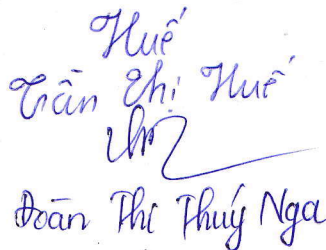 Huế
Trần Thị Huế
Đoàn Thị Thuý Nga